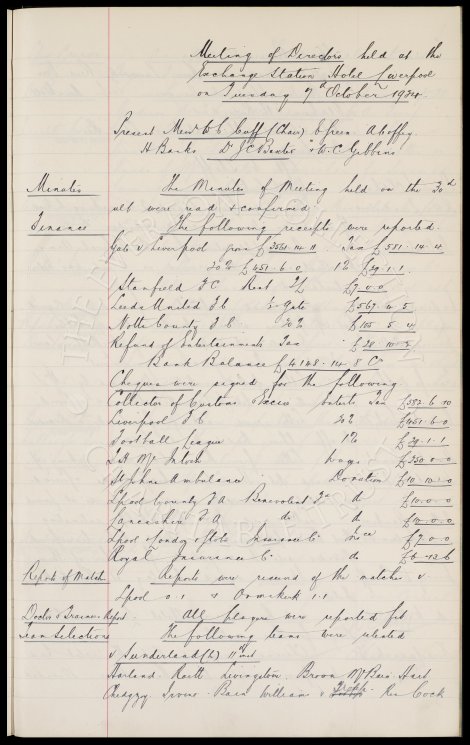 Meeting of Directors held at the
Exchange Station Hotel Liverpool
on Tuesday 7th October 1924.
Present Messrs W.C. Cuff (Chair) E Green. A Coffey.
H Banks Dr J.C. Baxter & W.C. Gibbins
Minutes The Minutes of Meeting held on the 30th
ult were read & confirmed
Finance The following receipts were reported.
Gate v Liverpool gross £3561-14-11 Tax £581-14-4
20% £451-6-0 1% £29-1-1.
Stanfield F.C Rent £7-0-0
Leeds United F.C. gate £567-4-5
Notts County F.C. 20% £105-5-4
Refund of Entertainments Tax £28-10-3
Bank Balance £4148-14-8 Cr
Cheques were signed for the following
Collector of Customs Excise Entertn Tax £587-6-10
Liverpool F.C 20% £451-6-0
Football League 1% £29-1-1
T.H. McIntosh Wages £350-0-0
St Johns Ambulance Donation £10-10-0
Lpool County F.A. Benevolent Fd do £10-0-0
Lancashire F.A do do £10-0-0
Lpool & London & Globe Insurance Co £7-0-0
Royal Insurance Co do £6-13-6
Reports of Match Reports were received of the matches v
Lpool 0.1 & Ormskirk 1.1
Doctor & Trainers Report. All players were reported fit
Team Selections The following teams were selected
v Sunderland (L) 11th inst
Harland. Raitt Livingstone. Brown McBain. Hart
Chedgzoy Irvine. Bain William & Troup. Res Cock